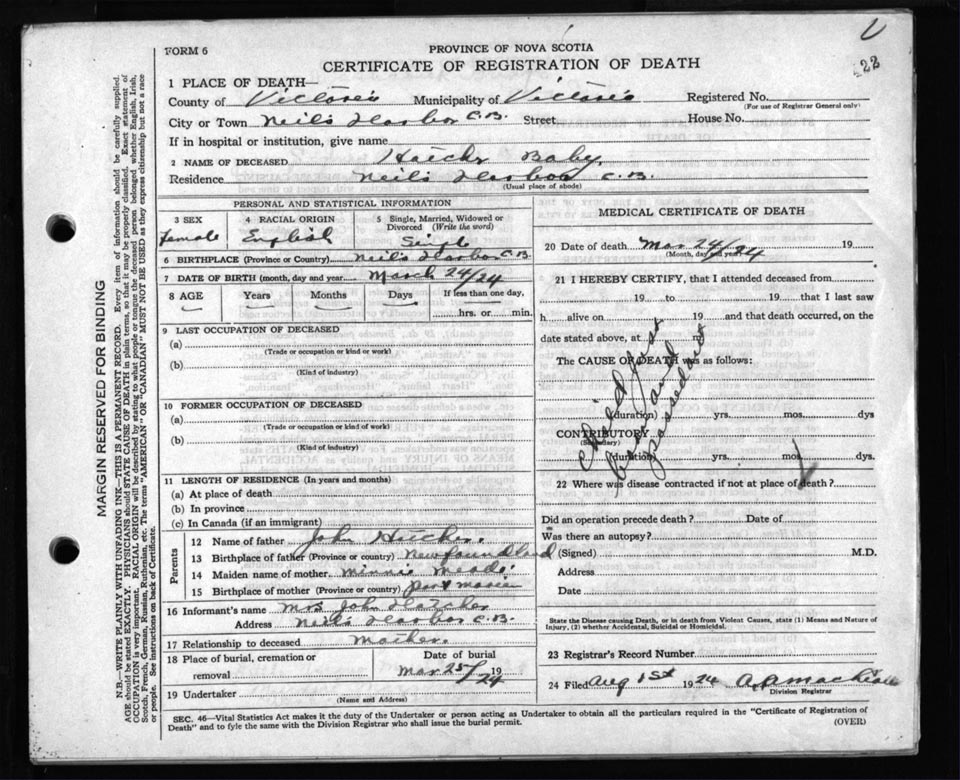 FORM 6
PROVINCE OF NOVA SCOTIA
CERTIFICATE OF REGISTRATION OF DEATH
22
1 PLACE OF DEATH—
County of Victoria Municipality of Victoria Registered No.
(For use of Registrar General only)
City or Town Neil's Harbor C.B. Street House No.
If in hospital or institution, give name
2 NAME OF DECEASED Baby.
Residence Neil's Harbor C.B.
(Usual place of abode)
PERSONAL AND STATISTICAL INFORMATION
3 SEX
Female
4 RACIAL ORIGIN
English
5 Single, Married, Widowed or Divorced (Write the word)
Single
6 BIRTHPLACE (Province or Country) Neil's Harbor C.B.
7 DATE OF BIRTH (month, day and year) March 24/24
8 AGE Years Months Days If less than one day,
hrs. or min.
9 LAST OCCUPATION OF DECEASED
(a)
(Trade or occupation or kind or work)
(b)
(Kind of industry)
10 FORMER OCCUPATION OF DECEASED
(a)
(Trade or occupation or kind of work)
(b)
(Kind of industry)
11 LENGTH OF RESIDENCE (In years and months)
(a) At place of death
(b) In province
(c) In Canada (if an immigrant)
Parents
12 Name of father John
13 Birthplace of father (Province or country) Newfoundland
14 Maiden name of mother Minnie
15 Birthplace of mother (Province or country)
16 Informant's name Mrs John Hatcher
Address Neil's Harbor C.B.
17 Relationship to deceased Mother.
18 Place of burial, cremation or removal
Date of burial
Mar 25/24 19
19 Undertaker
(Name and Address)
MEDICAL CERTIFICATE OF DEATH
20 Date of death Mar 24/24 19
(Month, day and year)
21 I HEREBY CERTIFY, that I attended deceased from
19 to 19 that I last saw
h alive on 19 and that death occurred, on
date stated above, at m.
The CAUSE OF DEATH was as follows:
Child just
born and
passed out
(duration) yrs. mos. dys
CONTRIBUTORY
(Secondary)
(duration) yrs. mos. dys.
22 Where was disease contracted if not at place of death?
Did an operation precede death? Date of
Was there an autopsy?
(Signed) M.D.
Address
Date
State the Disease causing Death, or in death from Violent Causes, state (1) Means and Nature of
Injury, (2) whether Accidental, Suicidal or Homicidal.
23 Registrar's Record Number
24 Filed Aug 1st 1924
Division Registrar
SEC. 46—Vital Statistics Act makes it the duty of the Undertaker or person acting as Undertaker to obtain all the particulars required in the "Certificate of Registration of
Death" and to fyle the same with the Division Registrar who shall issue the burial permit.
(OVER)
MARGIN RESERVED FOR BINDING
N.B.—WRITE PLAINLY WITH UNFADING INK—THIS IS A PERMANENT RECORD. Every item of information should be carefully supplied.
AGE should be stated EXACTLY. PHYSICIANS should STATE CAUSE OF DEATH in plain terms, so that it may be properly classified. Exact statement of
OCCUPATION is very important. RACIAL ORIGIN will be described by stating to what people or tongue the deceased person belonged, whether English, Irish,
Scotch, French, German, Russian, Ruthenian, etc. The terms "AMERICAN" or "CANADIAN" MUST NOT BE USED as they express citizenship but not a race
or people. See instructions on back of Certificate.